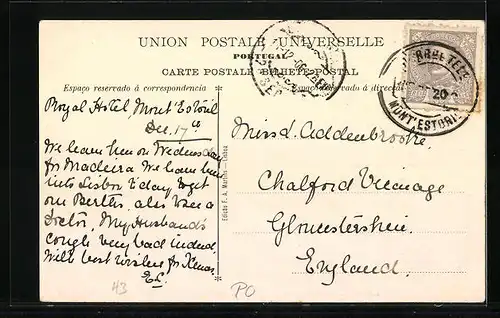 UNION POSTALE UNIVERSELLE
PORTUGAL
CARTE POSTALE BILHETE POSTAL
Espaço reservado á correspondencia
reservado á direcção
Royal Hotel Mont'Estoril
Dec. 17th
We leave here on Wednesday
for Madeira We have been
into Lisbon today to get
our Berths, also to see a
Doctor, My Husband's
cough very bad indeed.
With best wishes for Xmas.
Miss L. Addenbrooke
Chalford Vicarage
Gloucestershire.
England.
Edição F. A. Martins - Lisboa
MONT'ESTORIL
20
43
PO